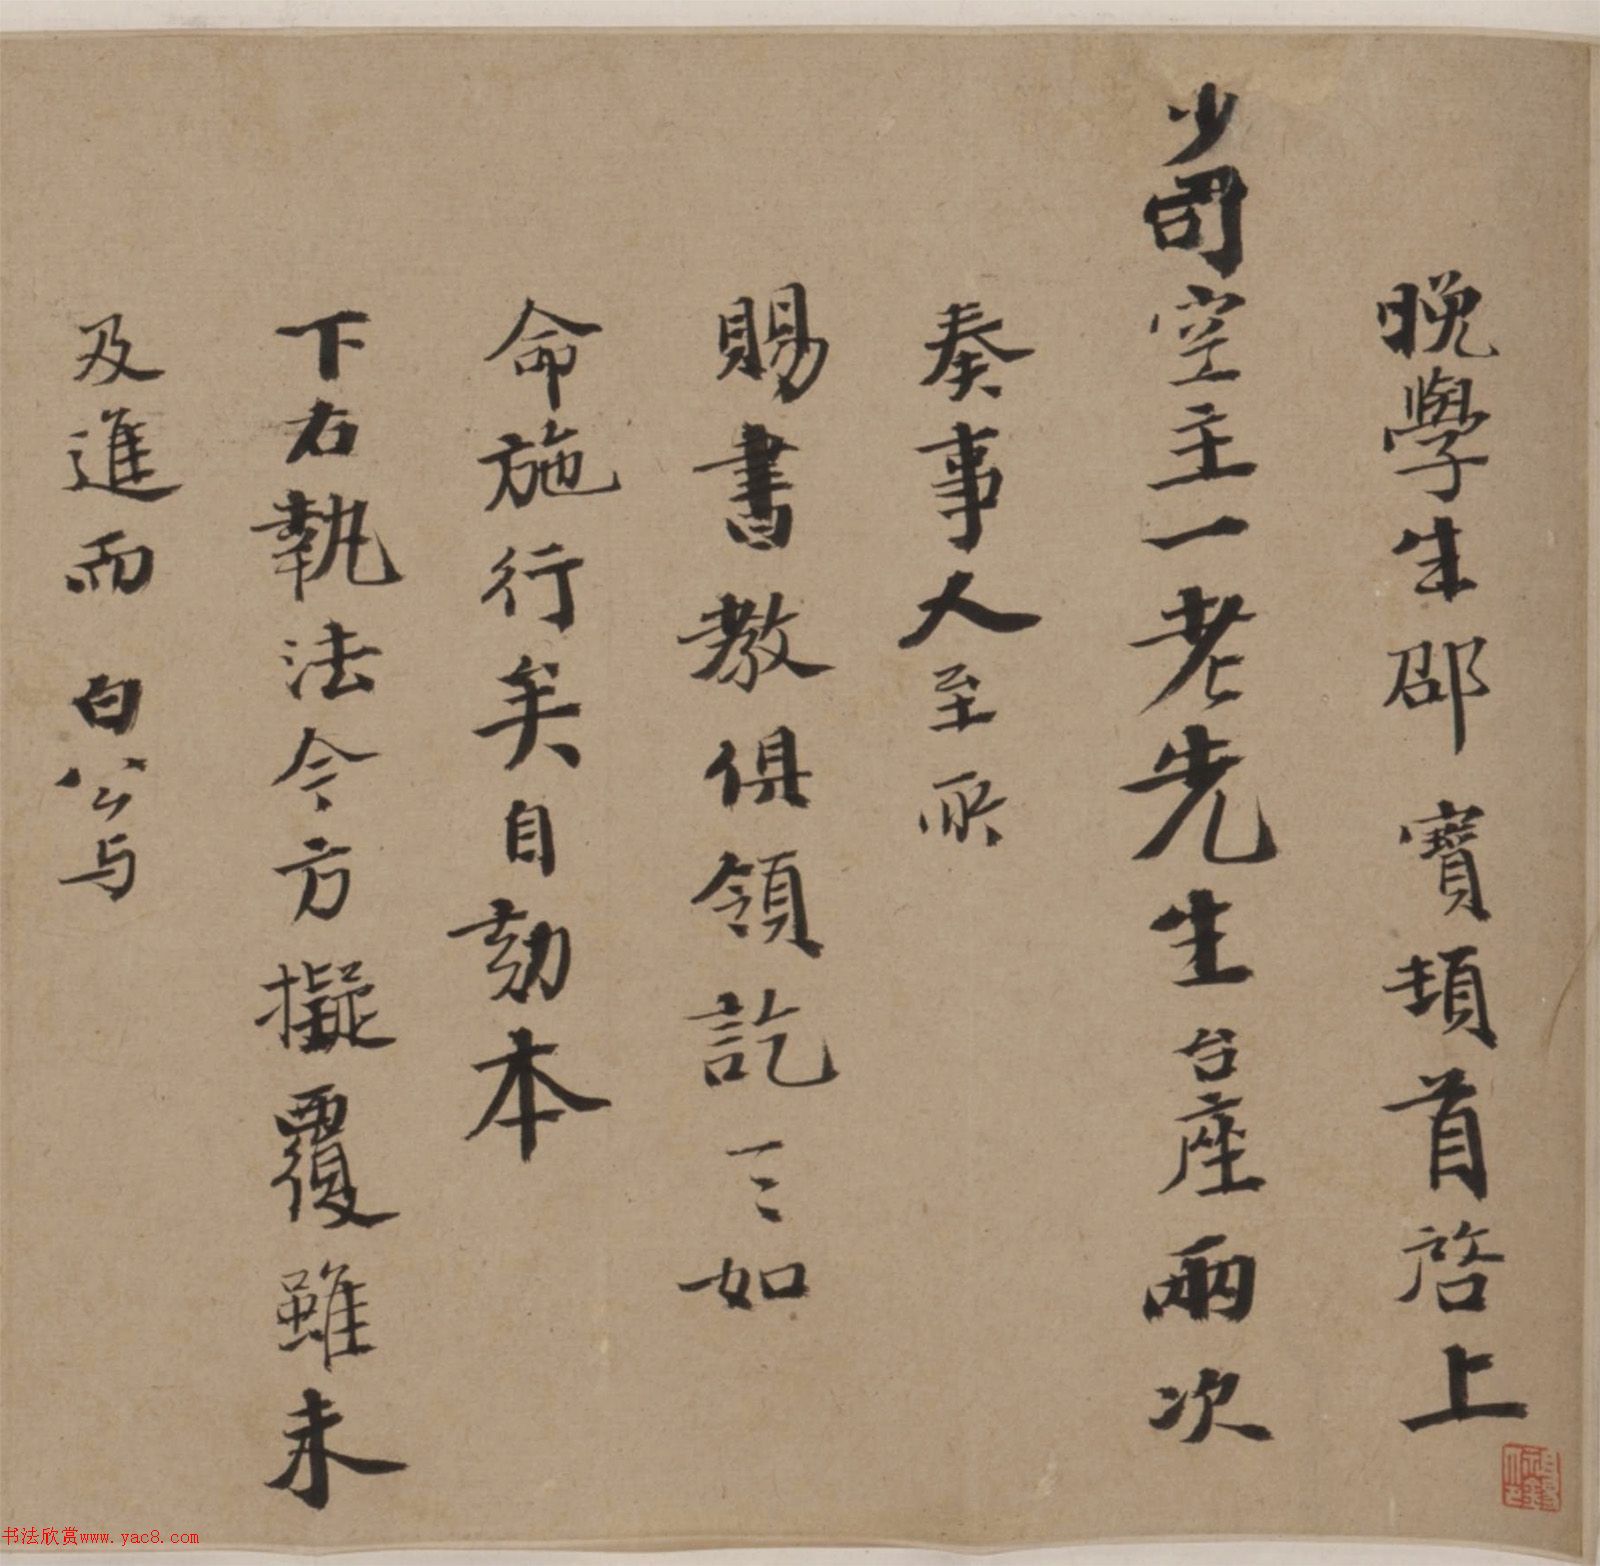 晚學生邵寶頓首啓上
少司空主一老先生台座兩次
奏事人至所
賜書教俱領訖一一如
命施行矣自劾本
下右執法令方擬覆雖未
及進而白公与
书法欣赏www.yac8.com